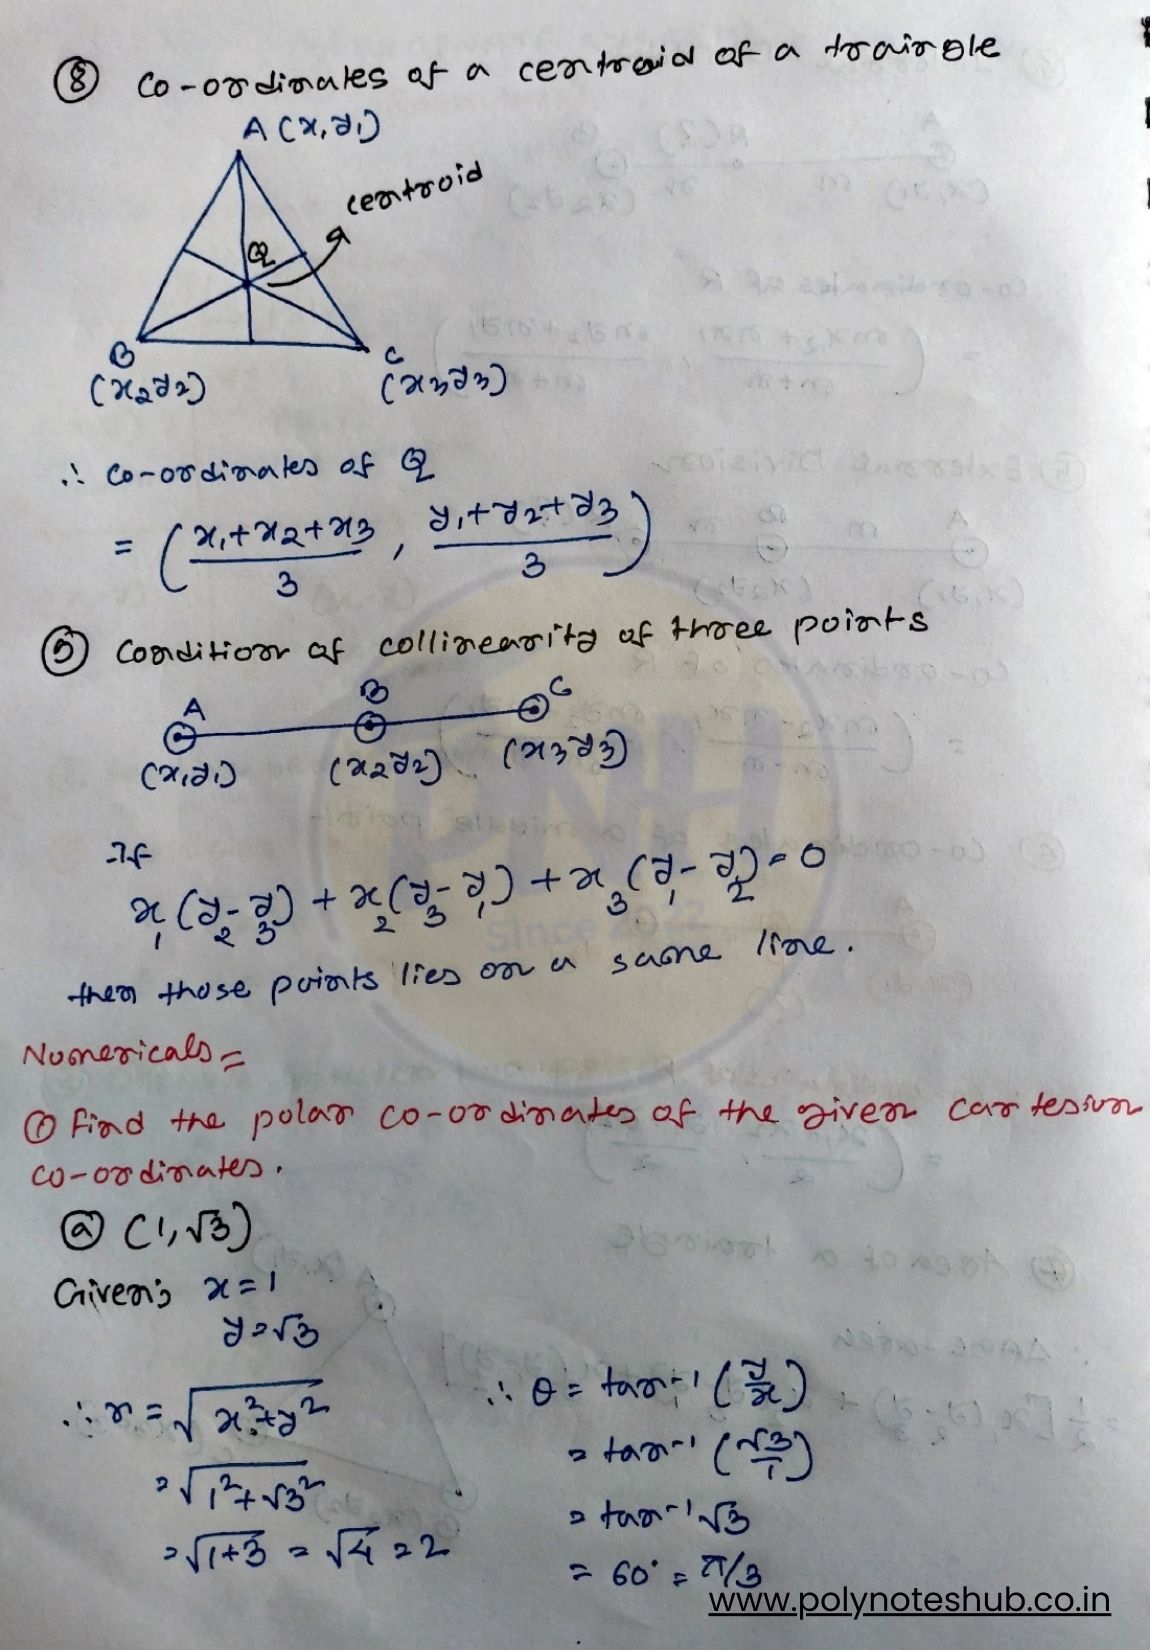 ⑧ Co-ordinates of a centroid of a traingle
A (x, y₁)
centroid
Q
B
C
(x₂y₂)
(x₃y₃)
∴ Co-ordinates of Q
= ( x₁+x₂+x₃ / 3 , y₁+y₂+y₃ / 3 )
⑨ Condition of collinearity of three points
A B C
(x₁y₁) (x₂y₂) (x₃y₃)
If
x₁(y₂-y₃) + x₂(y₃-y₁) + x₃(y₁-y₂) = 0
then those points lies on a same line.
Numericals =
① Find the polar co-ordinates of the given cartesian
co-ordinates.
ⓐ (1, √3)
Given; x = 1
y = √3
∴ r = √x²+y²
= √1²+√3²
= √1+3 = √4 = 2
∴ θ = tan⁻¹ (y/x)
= tan⁻¹ (√3/1)
= tan⁻¹ √3
= 60° = π/3
PNH
Since 2022
www.polynoteshub.co.in